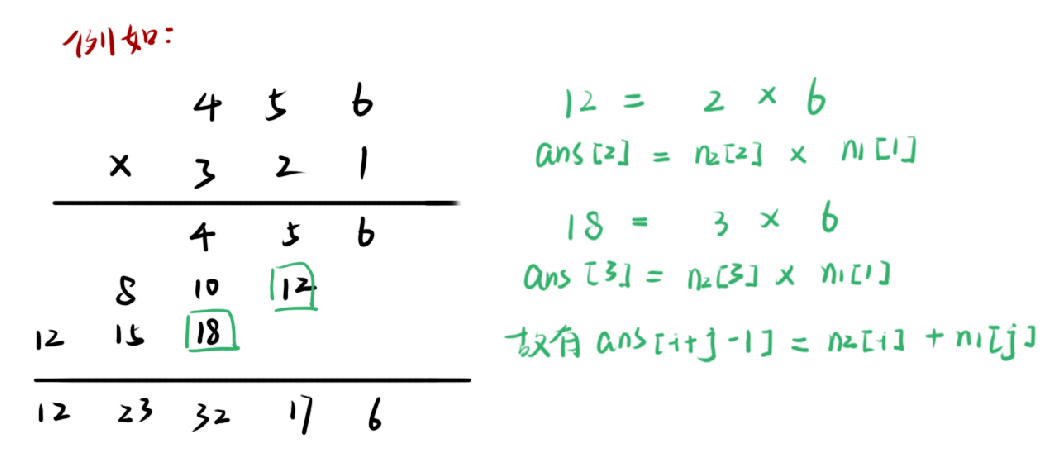 例如:
4 5 6
× 3 2 1
4 5 6
8 10 12
12 15 18
12 23 32 17 6
12 = 2 × 6
ans[2] = n2[2] × n1[1]
18 = 3 × 6
ans[3] = n2[3] × n1[1]
故有 ans[i+j-1] = n2[i] + n1[j]